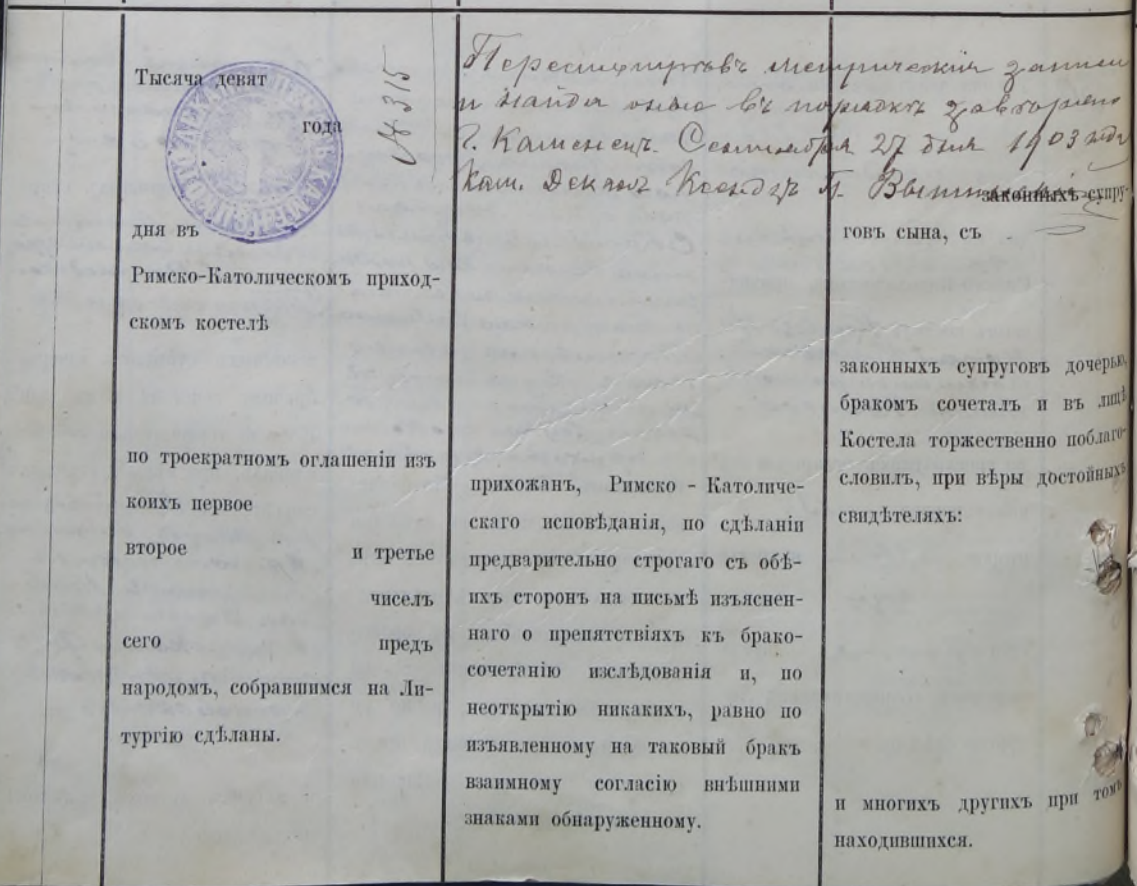 Тысяча девят
года
№ 315
дня въ
Римско-Католическомъ приход-
скомъ костелѣ
по троекратномъ оглашеніи изъ
коихъ первое
второе и третье
чиселъ
сего предъ
народомъ, собравшимся на Ли-
тургію сдѣланы.
метрическія
и найдя оныя въ порядкѣ
г. Каменецъ. Сентября 27 дня 1903 года
Кам. Декан Ксендзъ
прихожан, Римско - Католиче-
скаго исповѣданія, по сдѣланіи
предварительно строгаго съ обѣ-
ихъ сторонъ на письмѣ изъяснен-
наго о препятствіяхъ къ брако-
сочетанію изслѣдованія и, по
неоткрытію никакихъ, равно по
изъявленному на таковый бракъ
взаимному согласію внѣшними
знаками обнаруженному.
законныхъ супру-
говъ сына, съ
законныхъ супруговъ дочерью,
бракомъ сочеталъ и въ лицѣ
Костела торжественно поблаго-
словилъ, при вѣры достойныхъ
свидѣтеляхъ:
и многихъ другихъ при томъ
находившихся.